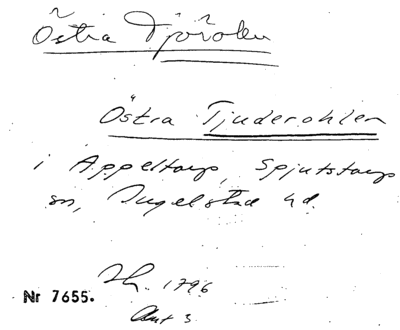 Östra Tjörölen
Östra Tjuderohlen
i Äppeltorp, Spjutstorps
sn, Ingelstad hd.
Sk. 1796
Nr 7655.
Akt 3